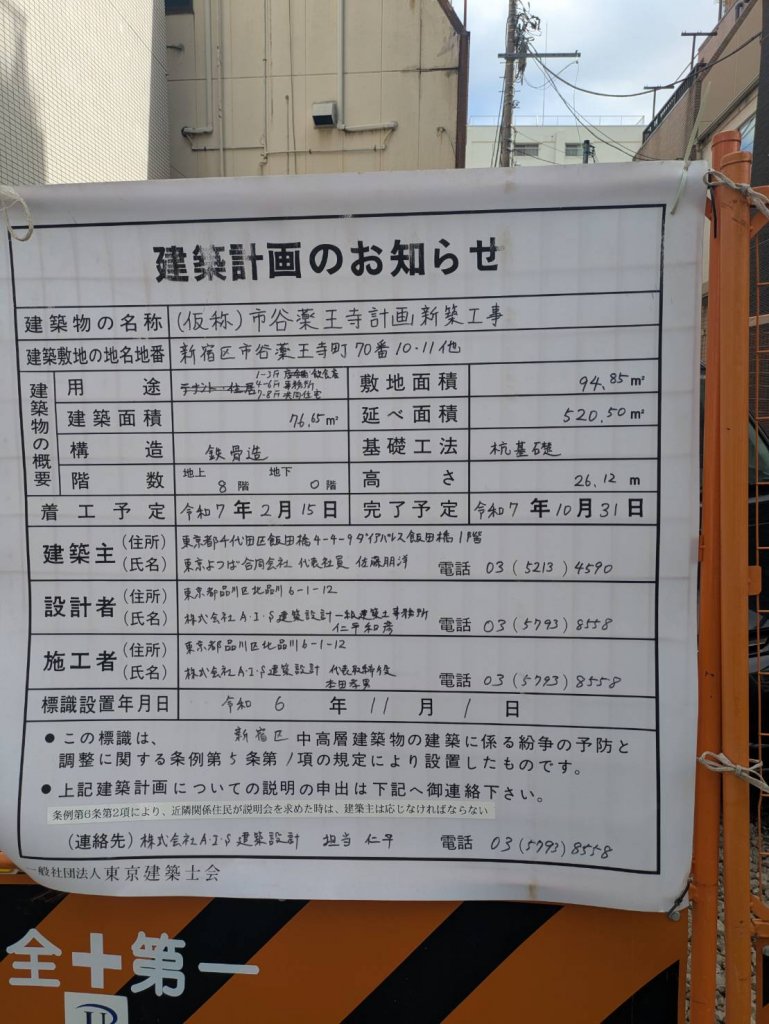 建築計画のお知らせ
建築物の名称 (仮称)市谷薬王寺計画新築工事
建築敷地の地名地番 新宿区市谷薬王寺町70番10・11他
建築物の概要
用途 テナント・住居 1-3F 店舗 飲食店
4-6F 事務所
7-8F 共同住宅
敷地面積 94.85m²
建築面積 76.65m² 延べ面積 520.50m²
構造 鉄骨造 基礎工法 杭基礎
階数 地上 8階 地下 0階 高さ 26.12 m
着工予定 令和7年2月15日 完了予定 令和7年10月31日
建築主 (住所) 東京都千代田区飯田橋4-4-9ダイアパレス飯田橋1階
(氏名) 東京よつば合同会社 代表社員 佐藤朋洋 電話 03(5213)4590
設計者 (住所) 東京都品川区北品川6-1-12
(氏名) 株式会社A・I・S建築設計一級建築士事務所
仁平和彦 電話 03(5793)8558
施工者 (住所) 東京都品川区北品川6-1-12
(氏名) 株式会社A・I・S建築設計 代表取締役
本田孝男 電話 03(5793)8558
標識設置年月日 令和6年11月1日
●この標識は、新宿区中高層建築物の建築に係る紛争の予防と
調整に関する条例第5条第1項の規定により設置したものです。
●上記建築計画についての説明の申出は下記へ御連絡下さい。
条例第6条第2項により、近隣関係住民が説明会を求めた時は、建築主は応じなければならない
(連絡先) 株式会社A・I・S建築設計 担当 仁平 電話 03(5793)8558
一般社団法人東京建築士会
全十第一